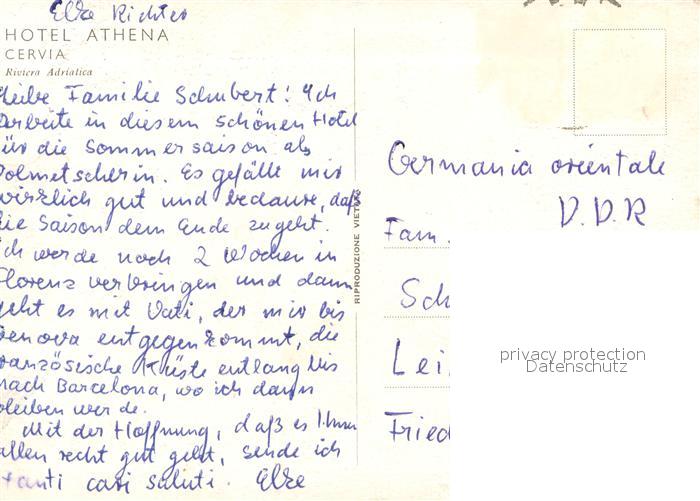 Elke Richter
HOTEL ATHENA
CERVIA
Riviera Adriatica
Liebe Familie Schubert! Ich
arbeite in diesem schönen Hotel
für die Sommersaison als
Dolmetscherin. Es gefällt mir
wirklich gut und bedaure, daß
die Saison dem Ende zugeht.
Ich werde noch 2 Wochen in
Florenz verbringen und dann
geht es mit Vati, der mir bis
Genova entgegenkommt, die
französische Küste entlang bis
nach Barcelona, wo ich dann
bleiben werde.
Mit der Hoffnung, daß es Ihnen
allen recht gut geht, sende ich
tanti cari saluti. Elke
RIPRODUZIONE VIETATA
Germania orientale
D.D.R
Fam.
Sch
Lei
Fried
privacy protection
Datenschutz